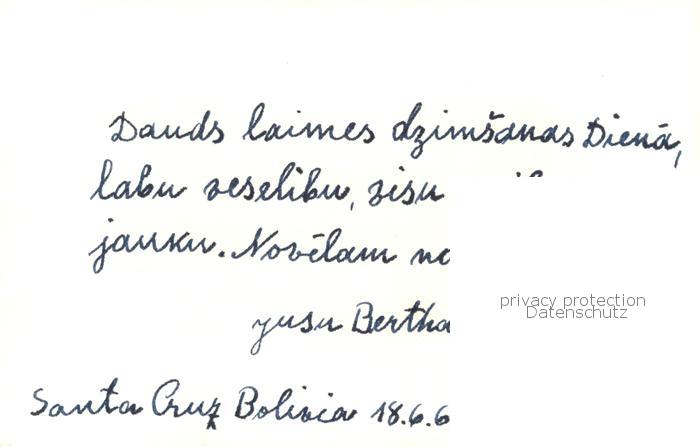 Dauds laimes dzimšanas Dienā,
labu veselibu, visu
jauku. Novēlam no
jusu Bertha
privacy protection
Datenschutz
Santa Cruz Bolivia 18.6.6